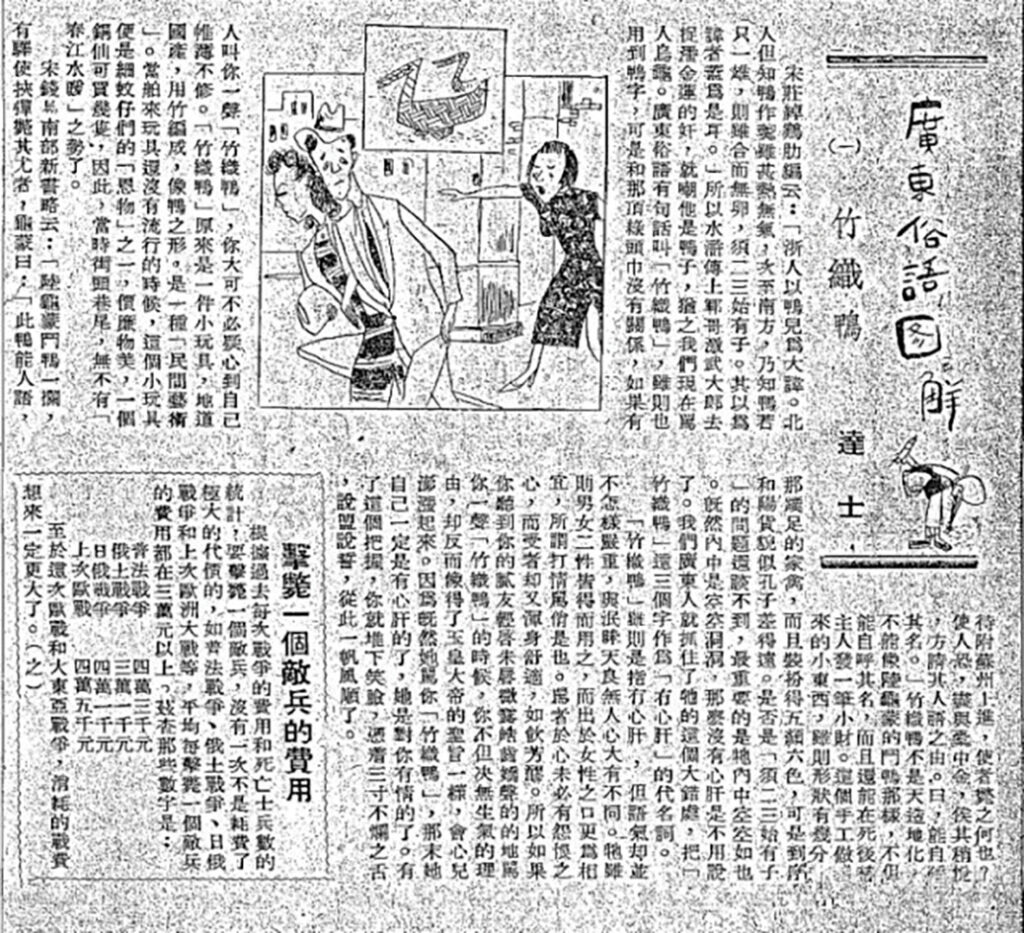 廣東俗語図解
(一)竹織鴨
達士
宋莊綽鷄肋編云:「浙人以鴨兒爲大諱。北
人但知鴨作羹雖甚熱無氣,後至南方,乃知鴨若
只一雄,則雖合而無卵,須二三始有子。其以爲
諱者蓋爲是耳。」所以水滸傳上鄆哥激武大郎去
捉潘金蓮的奸,就嘲他是鴨子,猶之我們現在罵
人烏龜。廣東俗語有句話叫「竹織鴨」,雖則也
用到鴨字,可是和那頂綠頭巾沒有關係,如果有
人叫你一聲「竹織鴨」,你大可不必疑心到自己
帷薄不修。「竹織鴨」原來是一件小玩具,地道
國產,用竹編成,像鴨之形。是一種「民間藝術
」。當舶來玩具還沒有流行的時候,這個小玩具
便是細蚊仔們的「恩物」之一,價廉物美,一個
銅仙可買幾隻,因此,當時街頭巷尾,無不有「
春江水暖」之勢了。
宋錢易南部新書略云:「陸龜蒙鬥鴨一欄,
有驛使挾彈斃其尤者,龜蒙曰:「此鴨能人語,
待附蘇州上進,使者斃之何也?
使人恐,盡與橐中金,俟其稍悅
,方請其人語之由。曰,能自呼
其名。」竹織鴨不是天造地化,
不能像陸龜蒙的鬥鴨那樣,不但
能自呼其名,而且還能在死後替
主人發一筆小財。這個手工做
來的小東西,雖則形狀有幾分
那蹼足的家禽,而且裝扮得五顏六色,可是到底
和陽貨貌似孔子差得遠。是否是「須二三始有子
」的問題還談不到,最重要的是牠內中空空如也
。旣然內中是空空洞洞,那麼沒有心肝是不用說
了。我們廣東人就抓住了牠的這個大錯處,把「
竹織鴨」這三個字作爲「冇心肝」的代名詞。
「竹織鴨」雖則是指冇心肝,但語氣却並
不怎樣嚴重,與泯昧天良無人心大有不同。牠雖
則男女二性皆得而用之,而出於女性之口更爲相
宜,所謂打情罵俏是也。罵者於心未必有怨恨之
心,而受者却又渾身舒適,如飲芳醴。所以如果
你聽到你的膩友輕啓朱唇微露皓齒嬌聲的的地罵
你一聲「竹織鴨」的時候,你不但决無生氣的理
由,却反而像得了玉皇大帝的聖旨一樣,會心兒
澎漲起來。因爲旣然她罵你「竹織鴨」,那末她
自己一定是有心肝的了,她是對你有情的了。有
了這個把握,你就堆下笑臉,憑着三寸不爛之舌
,說盟設誓,從此一帆風順了。
擊斃一個敵兵的費用
根據過去每次戰爭的費用和死亡士兵數的
統計,要擊斃一個敵兵,沒有一次不是耗費了
極大的代價的,如普法戰爭、俄土戰爭、日俄
戰爭和上次歐洲大戰等,平均每擊斃一個敵兵
的費用都在三萬元以上。茲查那些數字是:
普法戰爭 四萬三千元
俄土戰爭 三萬一千元
日俄戰爭 四萬一千元
上次歐戰 四萬五千元
至於這次歐戰和大東亞戰爭,消耗的戰費
想來一定更大了。(之)